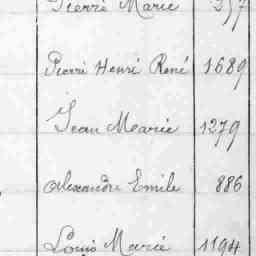 Pierre Marie 357
Pierre Henri René 1689
Jean Marie 1279
Alexandre Emile 886
Louis Marie 1194